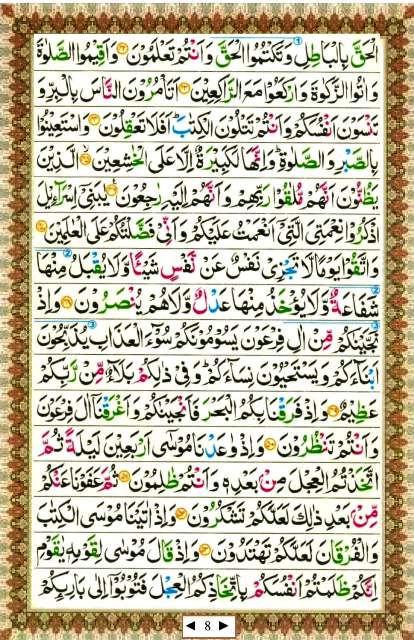 الْحَقَّ بِالْبَاطِلِ وَتَكْتُمُوا الْحَقَّ وَاَنْتُمْ تَعْلَمُوْنَ ۝٤٢ وَاَقِيْمُوا الصَّلٰوةَ
وَاٰتُوا الزَّكٰوةَ وَارْكَعُوْا مَعَ الرّٰكِعِيْنَ ۝٤٣ اَتَاْمُرُوْنَ النَّاسَ بِالْبِرِّ وَ
تَنْسَوْنَ اَنْفُسَكُمْ وَاَنْتُمْ تَتْلُوْنَ الْكِتٰبَ ؕ اَفَلَا تَعْقِلُوْنَ ۝٤٤ وَاسْتَعِيْنُوْا
بِالصَّبْرِ وَالصَّلٰوةِ ؕ وَاِنَّهَا لَكَبِيْرَةٌ اِلَّا عَلَى الْخٰشِعِيْنَ ۝٤٥ الَّذِيْنَ
يَظُنُّوْنَ اَنَّهُمْ مُّلٰقُوْا رَبِّهِمْ وَاَنَّهُمْ اِلَيْهِ رٰجِعُوْنَ ۝٤٦ يٰبَنِيْٓ اِسْرَآءِيْلَ
اذْكُرُوْا نِعْمَتِيَ الَّتِيْٓ اَنْعَمْتُ عَلَيْكُمْ وَاَنِّيْ فَضَّلْتُكُمْ عَلَى الْعٰلَمِيْنَ ۝٤٧
وَاتَّقُوْا يَوْمًا لَّا تَجْزِيْ نَفْسٌ عَنْ نَّفْسٍ شَيْـًٔا وَّلَا يُقْبَلُ مِنْهَا
شَفَاعَةٌ وَّلَا يُؤْخَذُ مِنْهَا عَدْلٌ وَّلَا هُمْ يُنْصَرُوْنَ ۝٤٨ وَاِذْ
نَجَّيْنٰكُمْ مِّنْ اٰلِ فِرْعَوْنَ يَسُوْمُوْنَكُمْ سُوْٓءَ الْعَذَابِ يُذَبِّحُوْنَ
اَبْنَآءَكُمْ وَيَسْتَحْيُوْنَ نِسَآءَكُمْ ؕ وَفِيْ ذٰلِكُمْ بَلَآءٌ مِّنْ رَّبِّكُمْ
عَظِيْمٌ ۝٤٩ وَاِذْ فَرَقْنَا بِكُمُ الْبَحْرَ فَاَنْجَيْنٰكُمْ وَاَغْرَقْنَآ اٰلَ فِرْعَوْنَ
وَاَنْتُمْ تَنْظُرُوْنَ ۝٥٠ وَاِذْ وٰعَدْنَا مُوْسٰٓى اَرْبَعِيْنَ لَيْلَةً ثُمَّ
اتَّخَذْتُمُ الْعِجْلَ مِنْۢ بَعْدِهٖ وَاَنْتُمْ ظٰلِمُوْنَ ۝٥١ ثُمَّ عَفَوْنَا عَنْكُمْ
مِّنْۢ بَعْدِ ذٰلِكَ لَعَلَّكُمْ تَشْكُرُوْنَ ۝٥٢ وَاِذْ اٰتَيْنَا مُوْسَى الْكِتٰبَ
وَالْفُرْقَانَ لَعَلَّكُمْ تَهْتَدُوْنَ ۝٥٣ وَاِذْ قَالَ مُوْسٰى لِقَوْمِهٖ يٰقَوْمِ
اِنَّكُمْ ظَلَمْتُمْ اَنْفُسَكُمْ بِاتِّخَاذِكُمُ الْعِجْلَ فَتُوْبُوْٓا اِلٰى بَارِىِٕكُمْ
◄ 8 ►